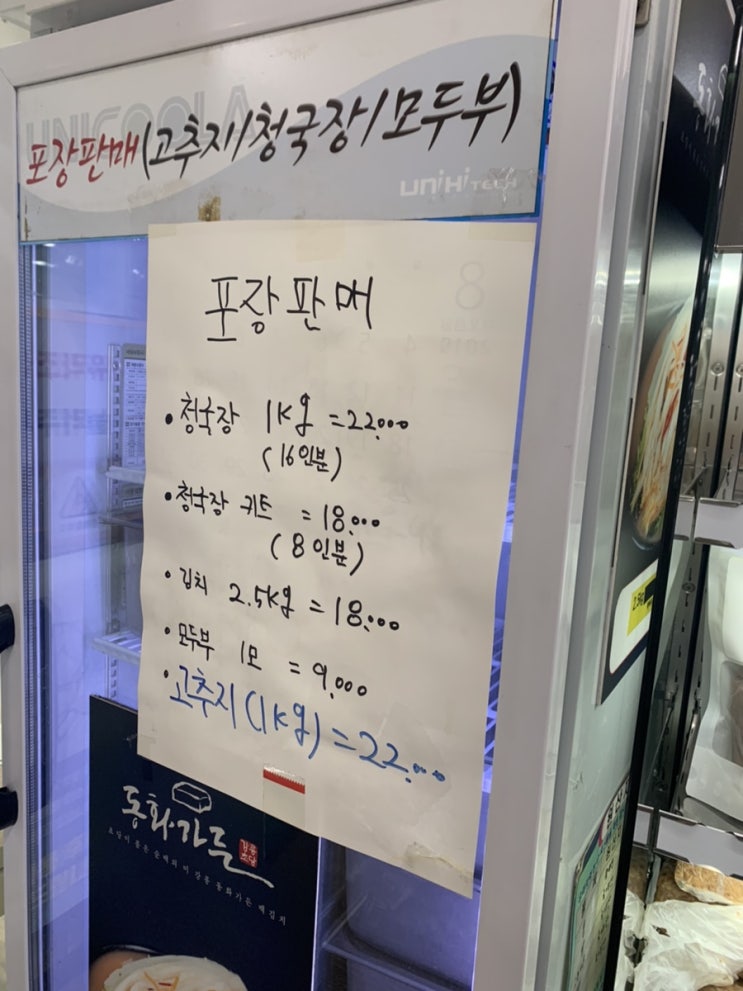 포장판매(고추지/청국장/모두부)
UNIHITECH
포장판매
• 청국장 1Kg = 22,000
(16인분)
• 청국장 키트 = 18,000
(8인분)
• 김치 2.5Kg = 18,000
• 모두부 1모 = 9,000
• 고추지(1kg) = 22,000
동화가든
강릉
초당